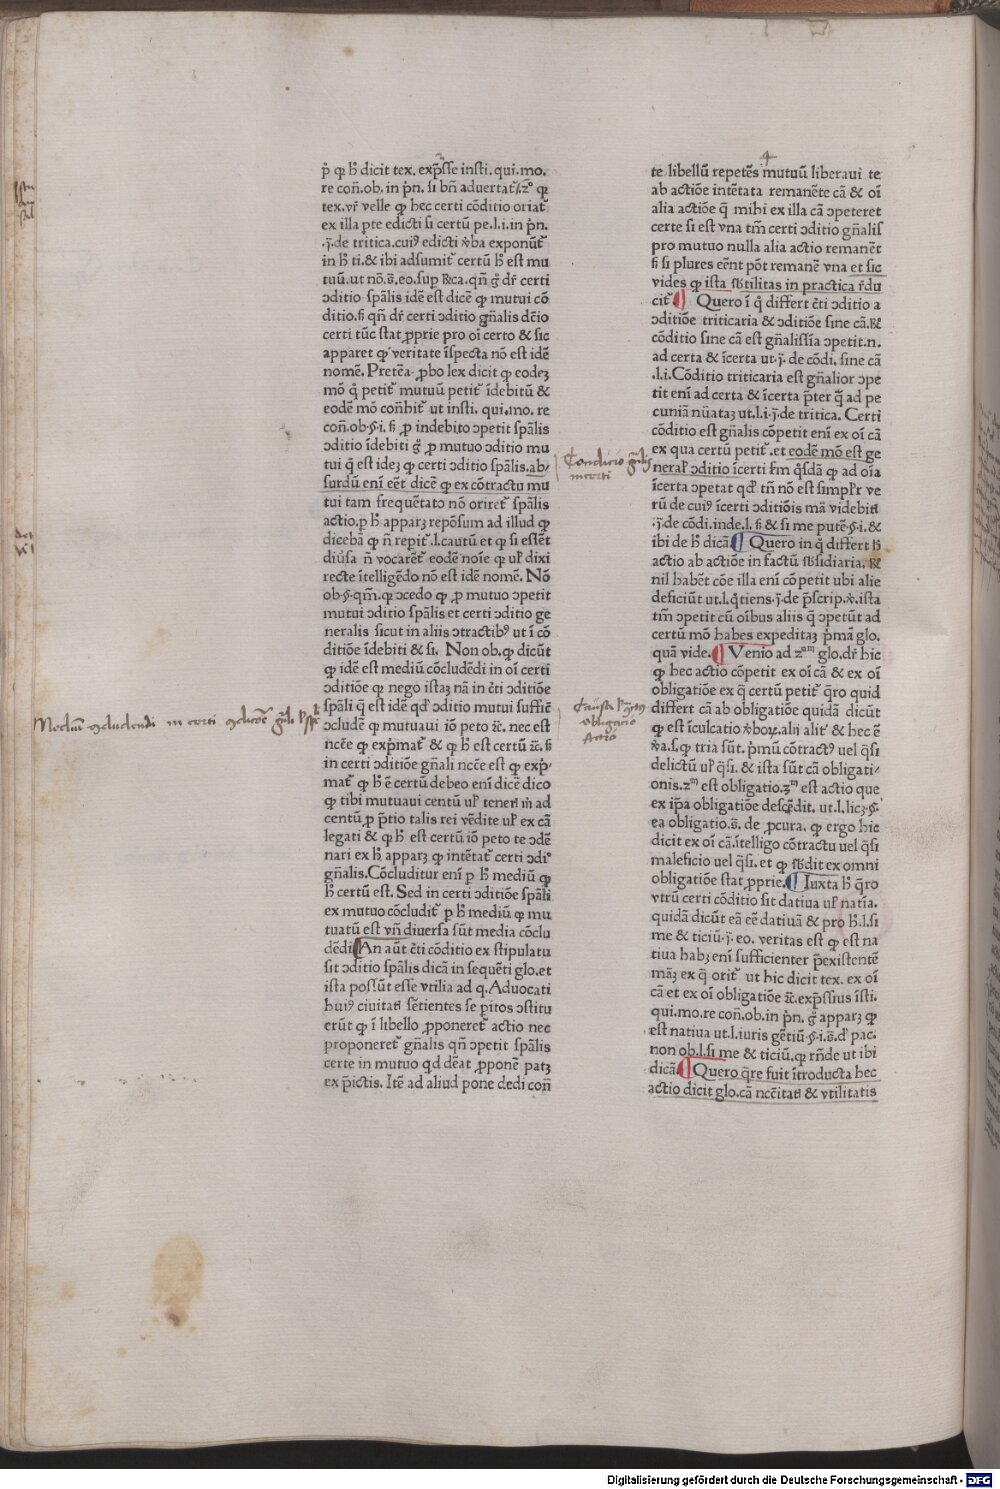 p̄ ꝙ hͦ dicit tex. exp̄sse insti. qui. mo.
re con̄. ob. in p̄n. si bn̄ aduertat᷑. zͦ ꝙ
tex. vr̄ velle ꝙ hec certi cōditio oriat᷑
ex illa pte edicti si certū pe. l. i. in p̄n.
.j̄. de tritica. cuiꝰ edicti v̄ba exponūt᷑
in hͦ ti. & ibi adsumit᷑ certū hͦ est mu
tuū. ut nō. s̄. eo. sup &ca. qn̄ g̊ dr̄ certi
ↄditio spālis idē est dicē ꝙ mutui cō
ditio. sꝫ qn̄ dr̄ certi ↄditio gn̄alis dēio
certi tūc stat ꝓprie pro oī certo & sic
apparet ꝙ veritate īspecta nō est idē
nomē. Pretēa ꝓbo lex dicit ꝙ eodeꝫ
mō q̊ petit᷑ mutuū petit᷑ īdebitū &
eodē mō con̄hit᷑ ut insti. qui. mo. re
con̄. ob. §. i. sꝫ ꝓ indebito ↄpetit spālis
ↄditio īdebiti g̊ ꝓ mutuo ↄditio mu
tui q̄ est ideꝫ ꝙ certi ↄditio spālis. ab/
surdū enī eēt dicē ꝙ ex cōtractu mu
tui tam frequētato nō oriret᷑ spālis
actio. p hͦ apparꝫ repōsum ad illud ꝙ
dicebā ꝙ n̄ repit᷑ l. cautū et ꝙ si eslēt
diūsa n̄ vocarēt᷑ eodē noīe ꝙ ul᷑ dixi
recte ītelligēdo nō est idē nomē. Nō
ob. §. qm̄. ꝙ ↄcedo ꝙ ꝓ mutuo ↄpetit
mutui ↄditio spālis et certi ↄditio ge
neralis sicut in aliis ↄtractibꝰ ut ī cō
ditiōe īdebiti & si. Non ob. ꝙ dicūt
ꝙ idē est mediū cōcludēdi in oī certi
ↄditiōe ꝙ nego istaꝫ nā in c̄ti ↄditiōe
spāli q̄ est idē qd̓ ↄditio mutui suffiē
ↄcludē ꝙ mutuaui iō peto ⁊c̄. nec est
ncēe ꝙ exp̄mat᷑ & ꝙ hͦ est certū ⁊c̄. sꝫ
in certi ↄditiōe gn̄ali ncēe est ꝙ exp̄/
mat᷑ ꝙ hͦ ē certū debeo enī dicē dico
ꝙ tibi mutuaui centū ul᷑ teneri m̄ ad
centū ꝓ p̄tio talis rei vēdite ul᷑ ex cā
legati & ꝙ hͦ est certū iō peto te ↄdē
nari ex hͦ apparꝫ ꝙ intētat᷑ certi ↄdiͦ
gn̄alis. Cōcluditur enī p hͦ mediū ꝙ
hͦ certū est. Sed in certi ↄditiōe spāli
ex mutuo cōcludit᷑ p hͦ mediū ꝙ mu
tuatū est vn̄ diuersa sūt media cōclu
dēdi ¶ An aūt c̄ti cōditio ex stipulatu
sit ↄditio spālis dicā in sequēti glo. et
ista possūt esse vtilia ad q. Aduocati
huiꝰ ciuitati sētientes se pitos ↄstitu
erūt ꝙ ī libello ꝓponeret᷑ actio nec
proponeret᷑ gn̄alis qn̄ ↄpetit spālis
certe in mutuo qd dēat ꝓponē patꝫ
ex p̄ictis. Itē ad aliud pone dedi con̄
4
te libellū repetēs mutuū liberaui te
ab actiōe intētata remanēte cā & oī
alia actiōe q̄ mihi ex illa cā ↄpeteret
certe si est vna tm̄ certi ↄditio gn̄alis
pro mutuo nulla alia actio remanēt
sꝫ si plures eēnt pōt remanē vna et sic
vides ꝙ ista sb̓tilitas in practica r̄du
cit᷑ ¶ Quero ī q̊ differt c̄ti ↄditio a
ↄditiōe triticaria & ↄditiōe sine cā. &
cōditio sine cā est gn̄alissīa ↄpetit. n.
ad certa & īcerta ut. j̄. de cōdi. sine cā
.l. i. Cōditio triticaria est gn̄alior ↄpe
tit enī ad certa & īcerta p̄ter q̄ ad pe
cuniā nūataꝫ ut. l. i. j̄. de tritica. Certi
cōditio est gn̄alis cōpetit enī ex oī cā
ex qua certū petit᷑. et eodē mō est ge
neral᷑ ↄditio īcerti sm̄ q̊sdā ꝙ ad oīa
īcerta ↄpetat qd̓ tn̄ nō est simpl᷑r ve
rū de cuiꝰ īcerti ↄditiōis mā videbit᷑
.j̄. de cōdi. inde. l. sꝫ & si me putē. §. i. &
ibi de hͦ dicā ¶ Quero in q̊ differt hͦ
actio ab actiōe in factū sb̓sidiaria. &
nil habēt cōe illa enī cōpetit ubi alie
deficiūt ut. l. q̊tiens. j̄. de p̄scrip. v̄. ista
tm̄ ↄpetit cū oībus aliis q̄ ↄpetūt ad
certū mō habes expeditaꝫ p̄mā glo.
quā vide. ¶ Venio ad zᵃᵐ glo. dr̄ hic
ꝙ hec actio cōpetit ex oī cā & ex oī
obligatiōe ex q̄ certū petit᷑ q̄ro quid
differt cā ab obligatiōe quidā dicūt
ꝙ est īculcatio v̄boꝝ. alii alit᷑ & hec ē
v̄a. s. ꝙ tria sūt. p̄mū cōtractꝰ uel q̊si
delictū ul᷑ q̊si. & ista sūt cā obligati/
onis. zᵐ est obligatio. ꝫᵐ est actio que
ex ip̄a obligatiōe descēdit. ut. l. licꝫ. §
ea obligatio. s̄. de ꝓcura. ꝙ ergo hic
dicit ex oī cā. ītelligo cōtractu uel q̊si
maleficio uel q̊si. et ꝙ sb̓dit ex omni
obligatiōe stat ꝓprie. ¶ Iuxta hͦ q̄ro
vtrū certi cōditio sit datiua ul᷑ natīa.
quidā dicūt eā eē datiuā & pro hͦ. l. si
me & ticiū. j̄. eo. veritas est ꝙ est na
tiua habꝫ enī sufficienter p̄existentē
māꝫ ex q̄ orit᷑ ut hic dicit tex. ex oī
cā et ex oī obligatiōe ⁊c̄. exp̄ssius īsti.
qui. mo. re con̄. ob. in p̄n. g̊ apparꝫ ꝙ
est natiua ut. l. iuris gētiū. §. i. s̄. d̓ pac.
non ob. l. si me & ticiū. ꝙ rn̄de ut ibi
dicā ¶ Quero q̄re fuit ītroducta hec
actio dicit glo. cā ncēitati & vtilitatis
Condicio gn̄lis
incerti
Causa
obligacio
Actio
Mediū ↄcludendi in certi ↄdictōe